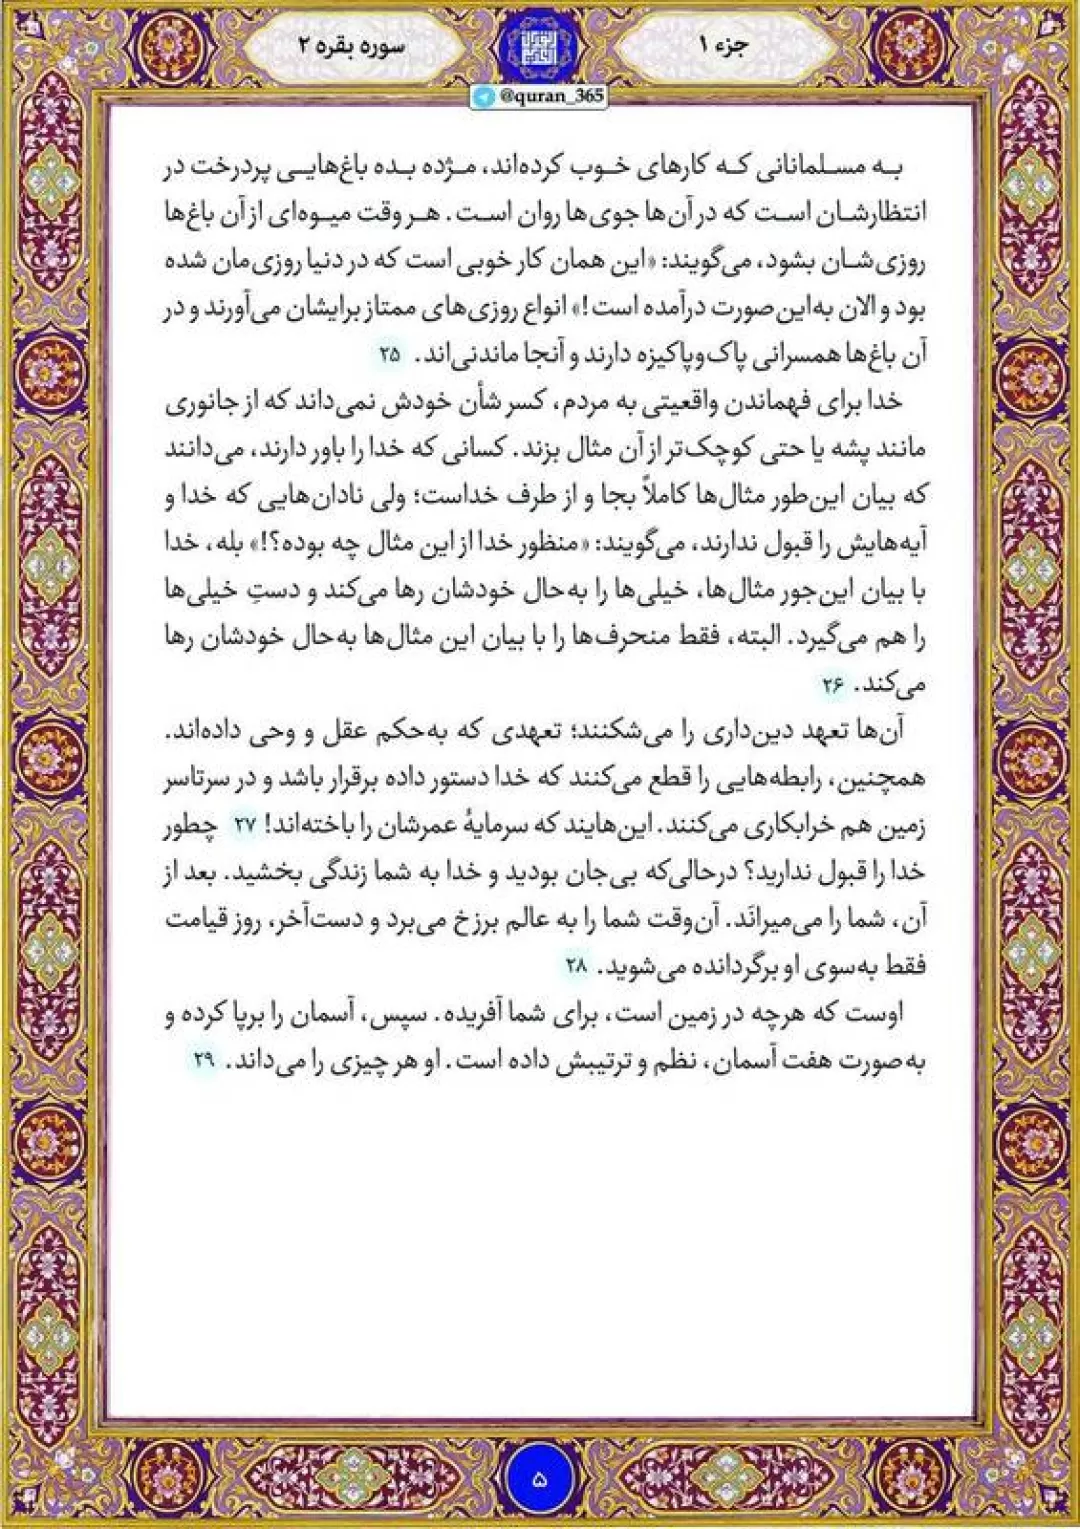 جزء ۱
سوره بقره ۲
@quran_365
به مسلمانانی که کارهای خوب کرده‌اند، مژده بده باغ‌هایی پردرخت در
انتظارشان است که در آن‌ها جوی‌ها روان است. هر وقت میوه‌ای از آن باغ‌ها
روزی‌شان بشود، می‌گویند: «این همان کار خوبی است که در دنیا روزی‌مان شده
بود و الان به‌این‌صورت درآمده است!» انواع روزی‌های ممتاز برایشان می‌آورند و در
آن باغ‌ها همسرانی پاک‌وپاکیزه دارند و آنجا ماندنی‌اند. ۲۵
خدا برای فهماندن واقعیتی به مردم، کسر شأن خودش نمی‌داند که از جانوری
مانند پشه یا حتی کوچک‌تر از آن مثال بزند. کسانی که خدا را باور دارند، می‌دانند
که بیان این‌طور مثال‌ها کاملاً بجا و از طرف خداست؛ ولی نادان‌هایی که خدا و
آیه‌هایش را قبول ندارند، می‌گویند: «منظور خدا از این مثال چه بوده؟!» بله، خدا
با بیان این‌جور مثال‌ها، خیلی‌ها را به‌حال خودشان رها می‌کند و دستِ خیلی‌ها
را هم می‌گیرد. البته، فقط منحرف‌ها را با بیان این مثال‌ها به‌حال خودشان رها
می‌کند. ۲۶
آن‌ها تعهد دین‌داری را می‌شکنند؛ تعهدی که به‌حکم عقل و وحی داده‌اند.
همچنین، رابطه‌هایی را قطع می‌کنند که خدا دستور داده برقرار باشد و در سرتاسر
زمین هم خرابکاری می‌کنند. این‌هایند که سرمایهٔ عمرشان را باخته‌اند! ۲۷ چطور
خدا را قبول ندارید؟ درحالی‌که بی‌جان بودید و خدا به شما زندگی بخشید. بعد از
آن، شما را می‌میرانَد. آن‌وقت شما را به عالم برزخ می‌برد و دست‌آخر، روز قیامت
فقط به‌سوی او برگردانده می‌شوید. ۲۸
اوست که هرچه در زمین است، برای شما آفریده. سپس، آسمان را برپا کرده و
به‌صورت هفت آسمان، نظم و ترتیبش داده است. او هر چیزی را می‌داند. ۲۹
۵